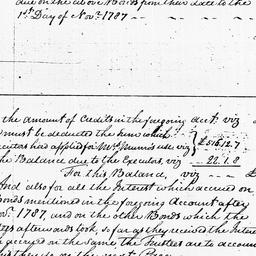 due on the above Bonds from their date to the
1st Day of Novr. 1787
the amount of Credits in the foregoing acct. viz
must be deducted the sum which
ecutors had applied for Mrs. Munn's use viz } £516.12.7
he Balance due to the Executors, viz 22.1.8
For this Balance, viz £
And also for all the Interest which accrued on
Bonds mentioned in the foregoing Account after
ovr. 1787, and on the other Bonds which the
tees afterwards took, so far as they received the Interest
accrued on the same the Trustees are to account